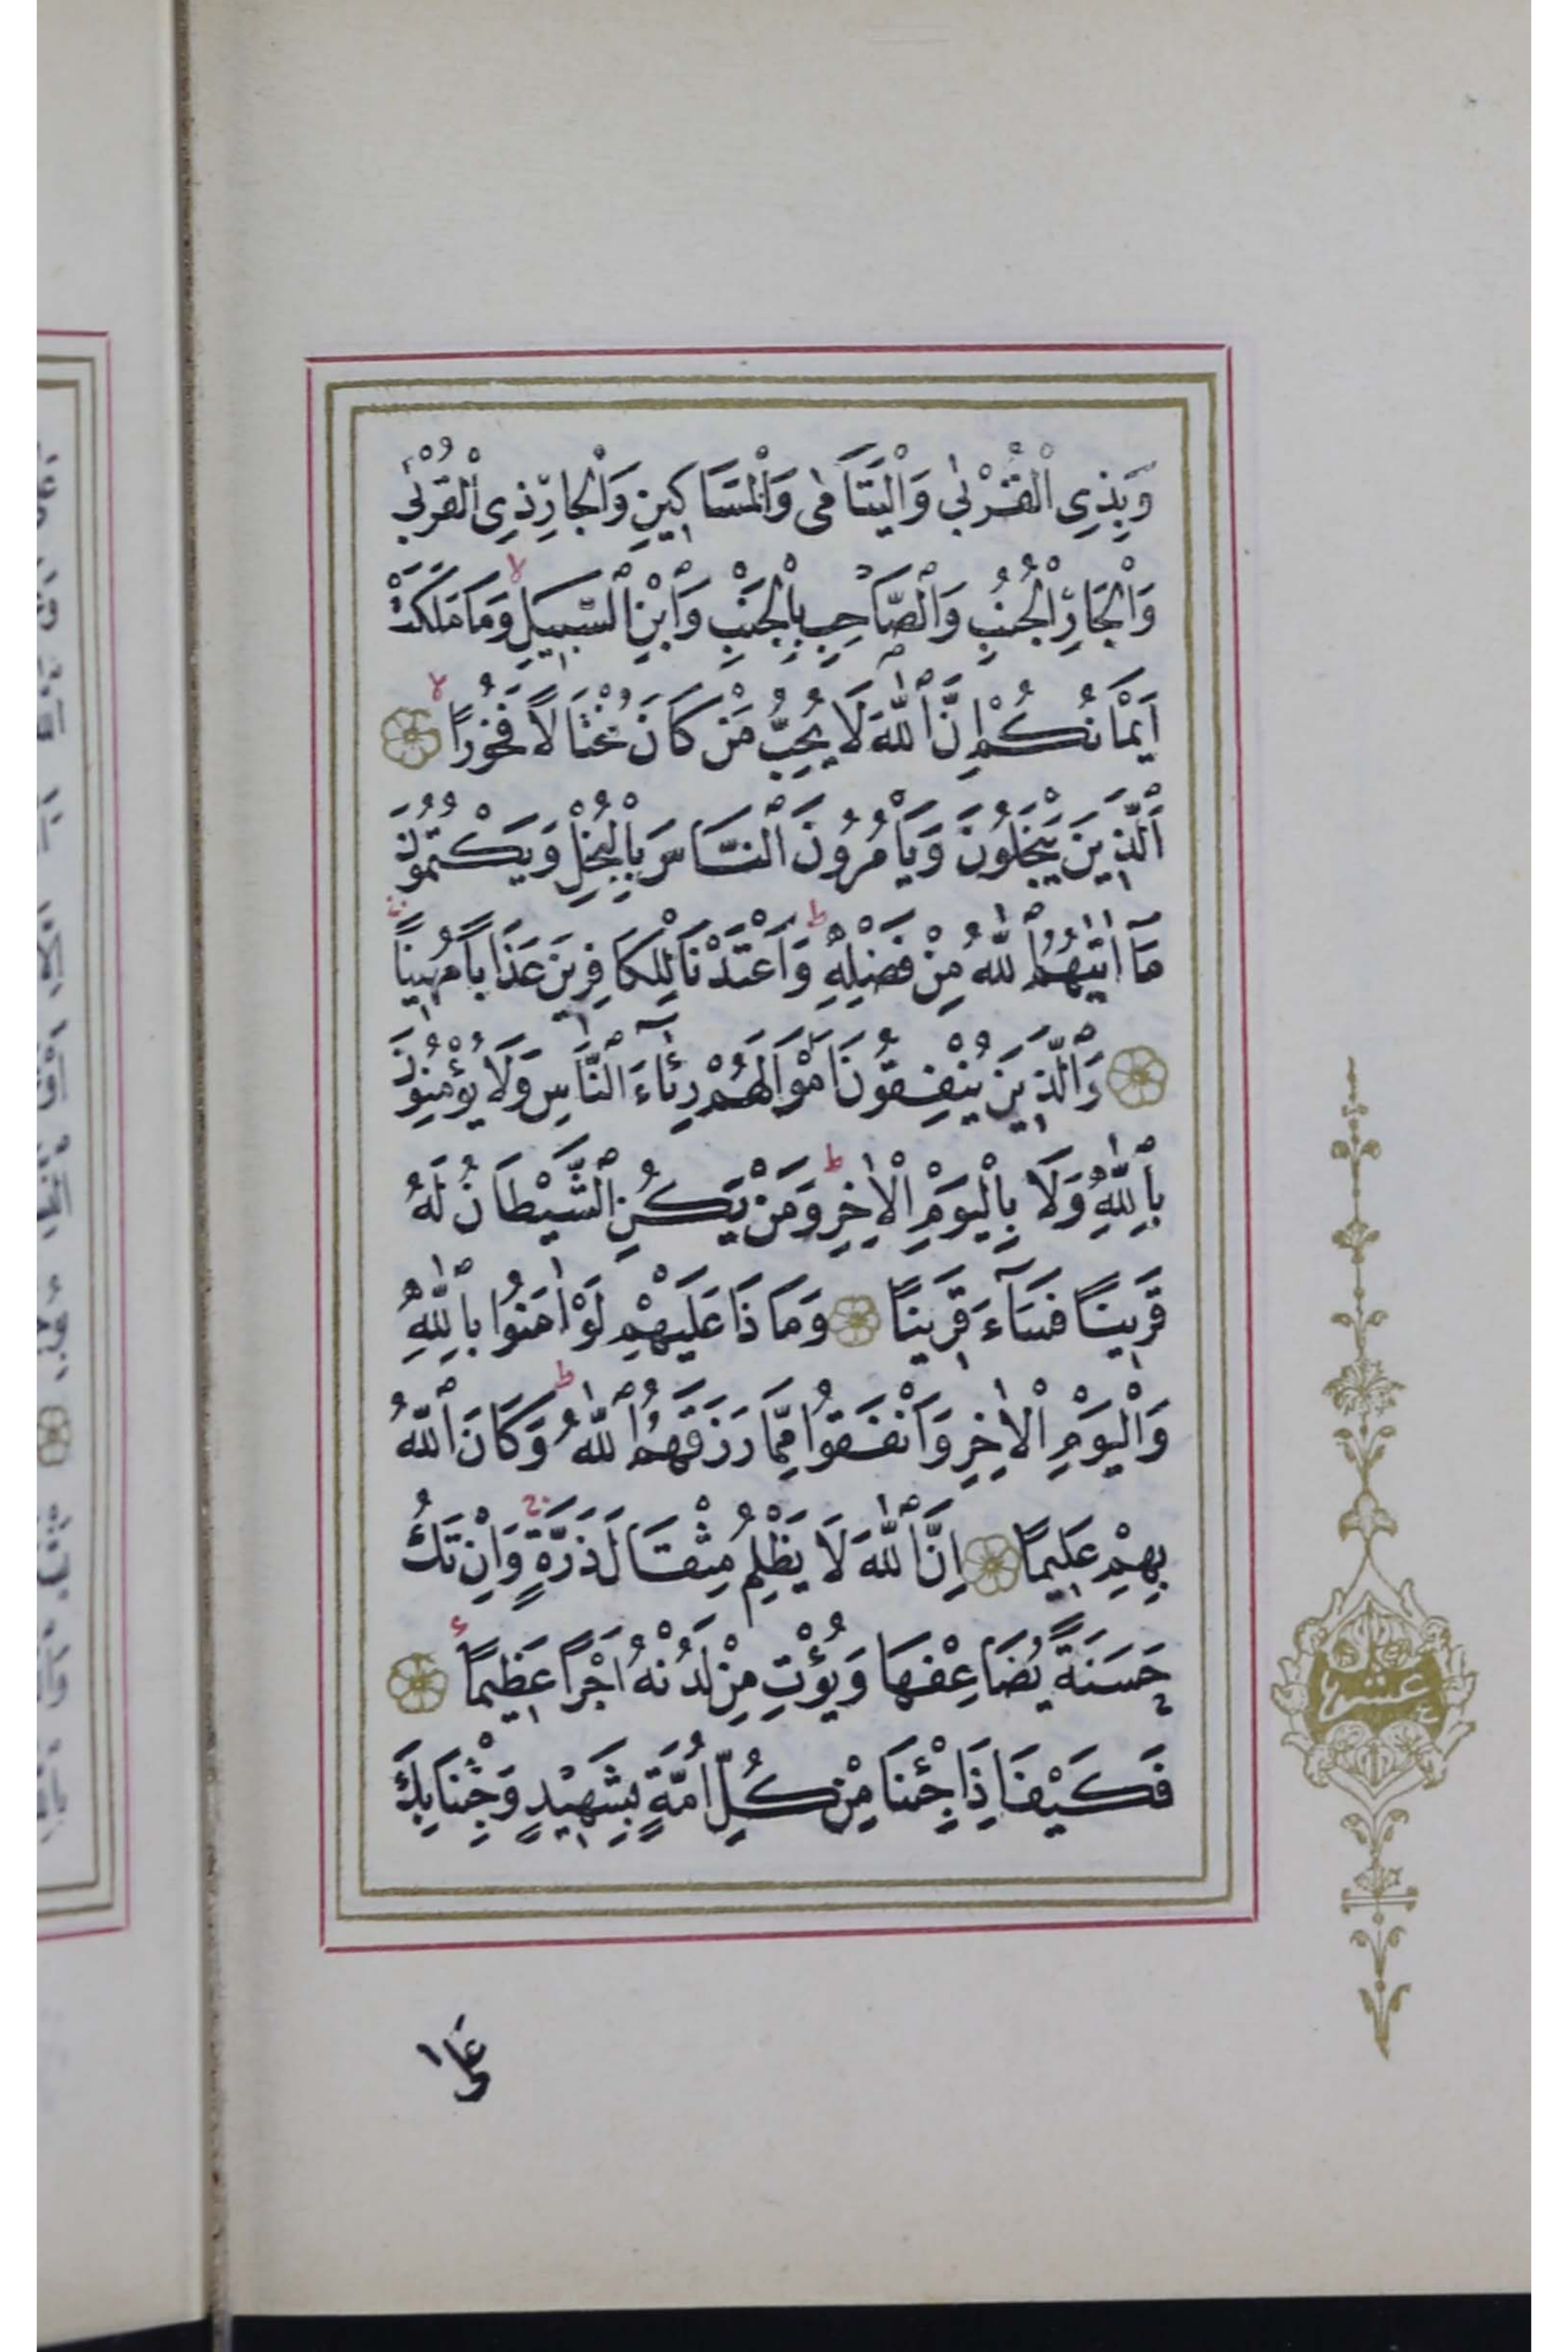 وَبِذِى الْقُرْبٰى وَالْيَتَامٰى وَالْمَسَاكِينِ وَالْجَارِ ذِى الْقُرْبٰى
وَالْجَارِ الْجُنُبِ وَالصَّاحِبِ بِالْجَنْبِ وَابْنِ السَّبِيلِ وَمَا مَلَكَتْ
اَيْمَانُكُمْ اِنَّ اللّٰهَ لَا يُحِبُّ مَنْ كَانَ مُخْتَالًا فَخُورًا
اَلَّذِينَ يَبْخَلُونَ وَيَأْمُرُونَ النَّاسَ بِالْبُخْلِ وَيَكْتُمُونَ
مَآ اٰتٰيهُمُ اللّٰهُ مِنْ فَضْلِهِ وَاَعْتَدْنَا لِلْكَافِرِينَ عَذَابًا مُهِينًا
وَالَّذِينَ يُنْفِقُونَ اَمْوَالَهُمْ رِئَآءَ النَّاسِ وَلَا يُؤْمِنُونَ
بِاللّٰهِ وَلَا بِالْيَوْمِ الْاٰخِرِ وَمَنْ يَكُنِ الشَّيْطَانُ لَهُ
قَرِينًا فَسَآءَ قَرِينًا وَمَاذَا عَلَيْهِمْ لَوْ اٰمَنُوا بِاللّٰهِ
وَالْيَوْمِ الْاٰخِرِ وَاَنْفَقُوا مِمَّا رَزَقَهُمُ اللّٰهُ وَكَانَ اللّٰهُ
بِهِمْ عَلِيمًا اِنَّ اللّٰهَ لَا يَظْلِمُ مِثْقَالَ ذَرَّةٍ وَاِنْ تَكُ
حَسَنَةً يُضَاعِفْهَا وَيُؤْتِ مِنْ لَدُنْهُ اَجْرًا عَظِيمًا
فَكَيْفَ اِذَا جِئْنَا مِنْ كُلِّ اُمَّةٍ بِشَهِيدٍ وَجِئْنَا بِكَ
عَلٰى
عشر